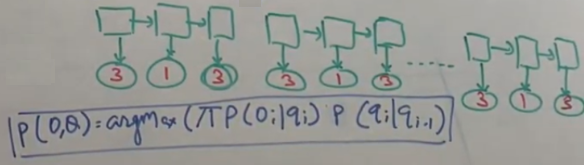 3 1 3 3 1 3 ...... 3 1 3
P(O,Q)=argmax (πP(Oi|qi) P (qi|qi-1)